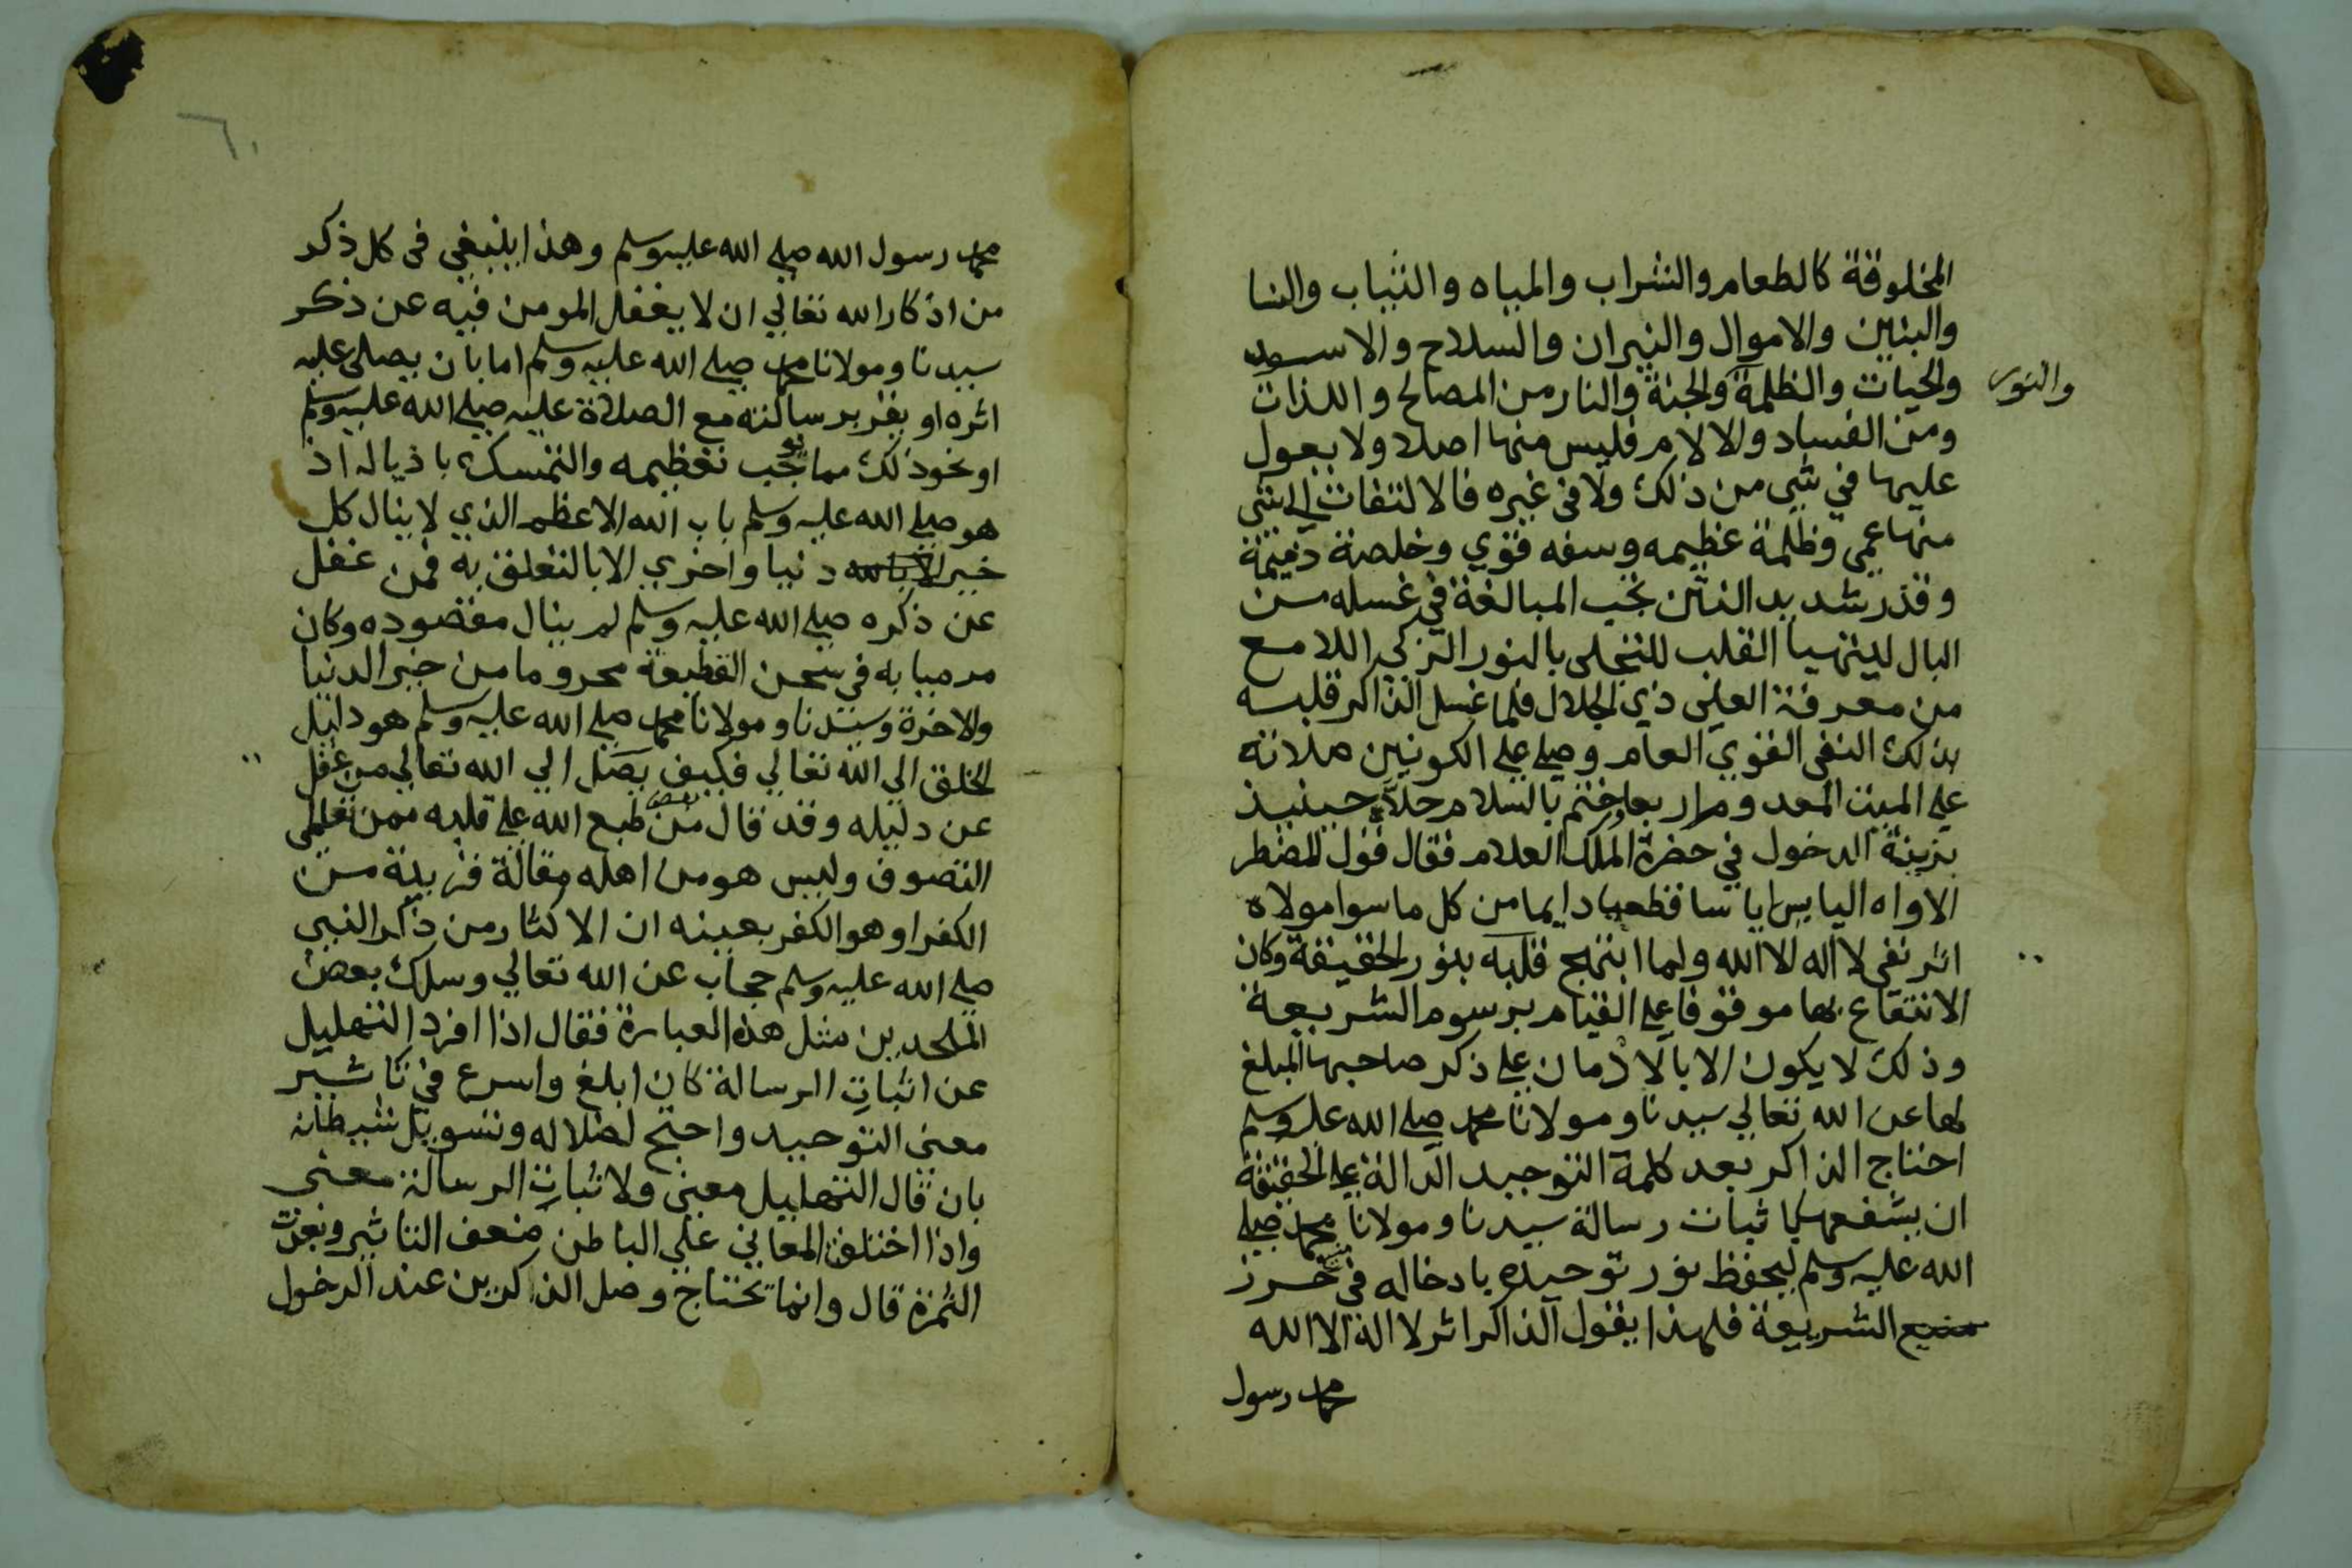 المخلوقة كالطعام والشراب والمياه والثياب والنسا
والبنين والاموال والنيران والسلاح والاسد
والحيات والظلمة والجنة والنار من المصالح واللذات
والنور
ومن الفساد والالام فليس منها اصلا ولا يعول
عليها في شي من ذلك ولا في غيره فالالتفات الي شي
منها عمى وظلمة عظيمه وسفه قوي وخلصة ذميمة
وقذر شديد النتن يجب المبالغة في غسله من
البال ليتهيا القلب للتجلى بالنور الزكي اللامع
من معرفة العلى ذي الجلال فلما غسل الذاكر قلبه
بذلك النفى القوي العام وصلي على الكونين صلاته
علي الميت المعد ومرار بعا وختم بالسلام حلاه حينيذ
بزينة الدخول في حضرة الملك العلام فقال قول المضطر
الاواه اليايس اياسا قطعيا دايما من كل ما سوا مولاه
اثر نفى لا اله الا الله ولما ابتهج قلبه بنور الحقيقة وكان
الانتفاع بها موقوفا على القيام برسوم الشريعة
وذلك لا يكون الا بالادمان على ذكر صاحبها المبلغ
لها عن الله تعالي سيدنا ومولانا محمد صلي الله عليه وسلم
احتاج الذاكر بعد كلمة التوحيد الدالة على الحقيقة
ان يشفعها باثبات رسالة سيدنا ومولانا محمد صلي
الله عليه وسلم ليحفظ نور توحيده بادخاله في حرز
منيع الشريعة فلهذا يقول الذاكر اثر لا اله الا الله
محمد رسول
٦٠
محمد رسول الله صلي الله عليه وسلم وهذا ينبغي فى كل ذكر
من اذكار الله تعالي ان لا يغفل المومن فيه عن ذكر
سيدنا ومولانا محمد صلي الله عليه وسلم اما بان يصلى عليه
اثره او يقر برسالته مع الصلاة عليه صلي الله عليه وسلم
او نحو ذلك مما يجب تعظيمه والتمسك باذياله اذ
هو صلي الله عليه وسلم باب الله الاعظم الذي لا ينال كل
خير الا بالله دنيا واخري الا بالتعلق به فمن غفل
عن ذكره صلي الله عليه وسلم لم ينال مقصوده وكان
مرميا به في سجن القطيعة محروما من خير الدنيا
والاخرة وسيدنا ومولانا محمد صلي الله عليه وسلم هو دليل
الخلق الي الله تعالي فكيف يصل الي الله تعالي من غفل
عن دليله وقد قال بعض من طبع الله على قلبه ممن تعلمى
التصوف وليس هو من اهله مقالة قريبة من
الكفر او هو الكفر بعينه ان الاكثار من ذكر النبي
صلي الله عليه وسلم حجاب عن الله تعالي وسلك بعض
الملحدين مثل هذه العبارة فقال اذا افرد التهليل
عن اثبات الرسالة كان ابلغ واسرع في تاثير
معنى التوحيد واحتج لضلاله وتسويل شيطانه
بان قال التهليل معنى ولاثبات الرسالة معنى
واذا اختلفت المعاني علي الباطن ضعف التاثير وبعدت
الثمرة قال وانما تحتاج وصل الذاكرين عند الدخول